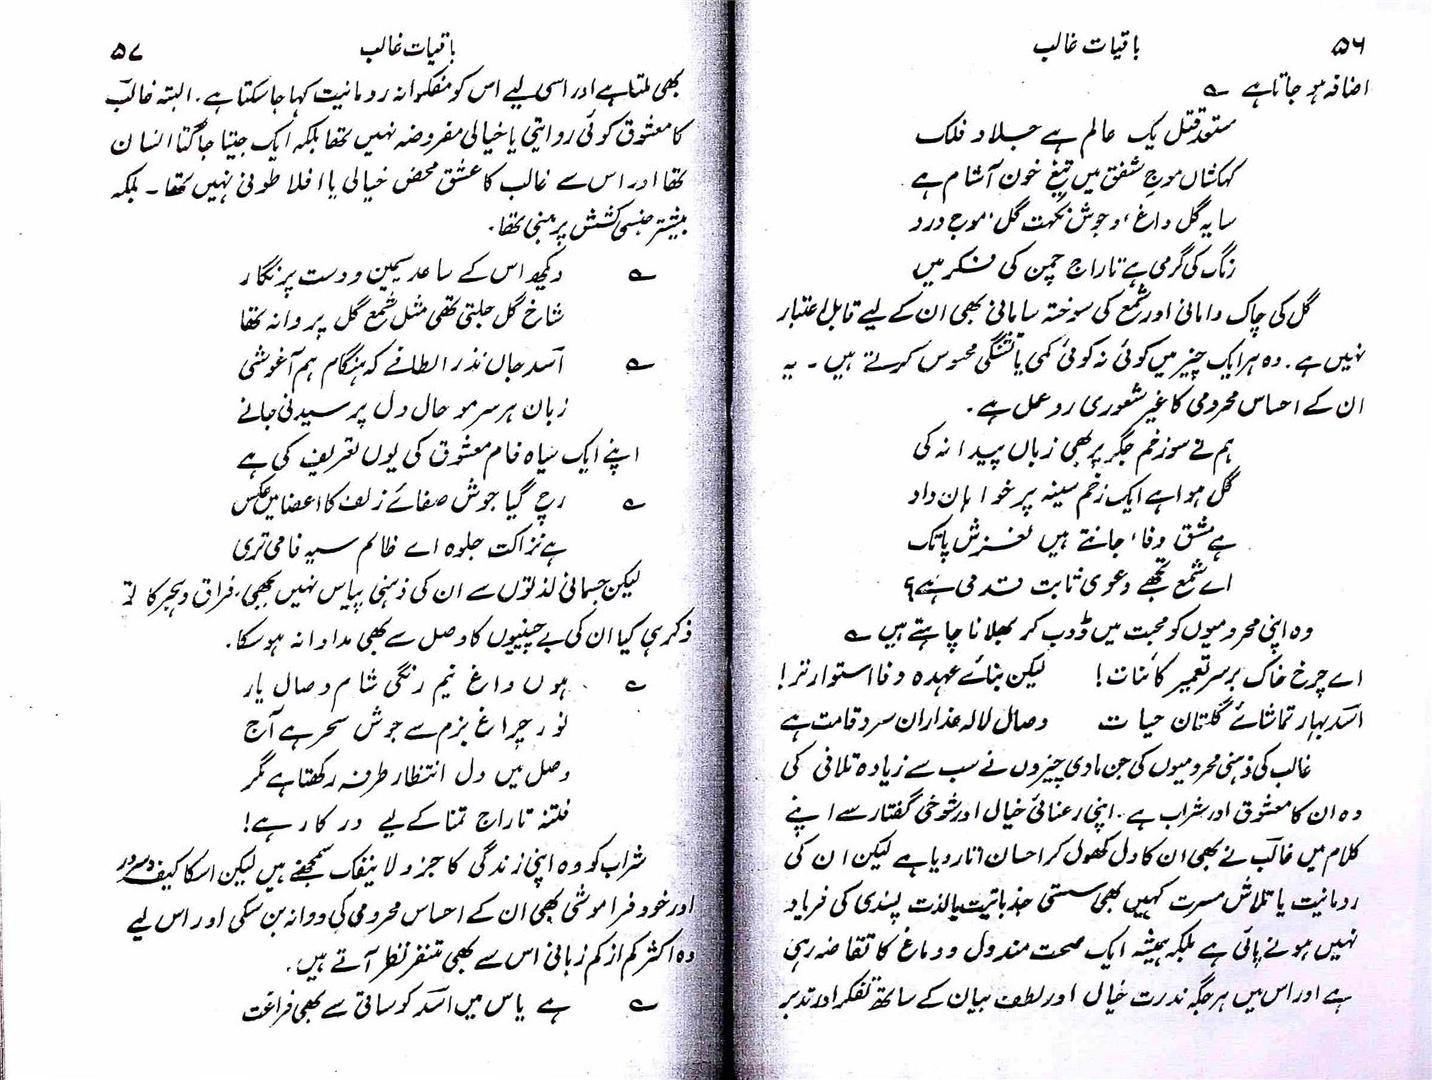 ۵۶ باقیات غالب
اضافہ ہو جاتا ہے ؎
مستعدِ قتل یک عالم ہے جلادِ فلک
کہکشاں موجِ شفق میں تیغِ خون آشام ہے
سایۂ گل داغ، و جوش نکہت گل، موج درد
رنگ کی گرمی ہے تاراج چمن کی فکر میں
گل کی چاک دامانی اور شمع کی سوختہ سامانی بھی ان کے لیے قابل اعتبار
نہیں ہے. وہ ہر ایک چیز میں کوئی نہ کوئی کمی یا تشنگی محسوس کرتے ہیں ۔ یہ
ان کے احساس محرومی کا غیر شعوری ردعمل ہے.
ہم نے سوزخم جگر پر بھی زباں پیدا نہ کی
گل ہوا ہے ایک زخم سینہ پر خواہان داد
ہے مشق وفا، جانتے ہیں لغزش پا تک
اے شمع تجھے دعویٰ ثابت قدمی ہے؟
وہ اپنی محرومیوں کو محبت میں ڈوب کر بھلانا چاہتے ہیں ؎
اے چرخ خاک برسر تعمیر کائنات! لیکن بنائے عہدہ وفا استوار تر!
اسد بہار تماشائے گلستان حیات وصال لالہ عذاران سرو قامت ہے
غالب کی ذہنی محرومیوں کی جن مادی چیزوں نے سب سے زیادہ تلافی کی
وہ ان کا معشوق اور شراب ہے. اپنی رعنائی خیال اور شوخی گفتار سے اپنے
کلام میں غالب نے بھی ان کا دل کھول کر احسان اتار دیا ہے لیکن ان کی
رومانیت یا تلاش مسرت کہیں بھی سستی جذباتیت یا لذت پسندی کی فریاد
نہیں ہونے پائی ہے بلکہ ہمیشہ ایک صحت مند دل و دماغ کا تقاضہ رہی
ہے اور اس میں ہر جگہ ندرت خیال اور لطف بیان کے ساتھ تفکر اور تدبر
باقیات غالب ۵۷
بھی ملتا ہے اور اسی لیے اس کو مفکرانہ رومانیت کہا جا سکتا ہے. البتہ غالب
کا معشوق کوئی روایتی یا خیالی مفروضہ نہیں تھا بلکہ ایک جیتا جاگتا انسان
تھا اور اس سے غالب کا عشق محض خیالی یا افلاطونی نہیں تھا ۔ بلکہ
بیشتر جنسی کشش پر مبنی تھا.
؎ دیکھ اس کے ساعد سیمین و دست پر نگار
شاخ گل جلتی تھی مثل شمع گل پروانہ تھا
؎ اسد جاں نذر الطافے کہ ہنگام ہم آغوشی
زبان ہر سر مو حال دل پرسیدنی جانے
اپنے ایک سیاہ فام معشوق کی یوں تعریف کی ہے
؎ رچ گیا جوش صفائے زلف کا اعضا میں عکس
ہے نزاکت جلوہ اے ظالم سیہ فامی تری
لیکن جسمانی لذتوں سے ان کی ذہنی پیاس نہیں بجھی، فراق و ہجر کا تو
ذکر ہی کیا ان کی بے چینیوں کا وصل سے بھی مداوا نہ ہو سکا.
؎ ہوں داغ نیم رنگی شام وصال یار
نور چراغ بزم سے جوش سحر ہے آج
وصل میں دل انتظار طرفہ رکھتا ہے مگر
فتنہ تاراج تمنا کے لیے درکار ہے!
شراب کو وہ اپنی زندگی کا جزو لاینفک سمجھتے ہیں لیکن اسکا کیف و سرور
اور خود فراموشی بھی ان کے احساس محرومی کی دوا نہ بن سکی اور اس لیے
وہ اکثر کم از کم زبانی اس سے بھی متنفر نظر آتے ہیں.
؎ ہے یاس میں اسد کو ساقی سے بھی فراغت